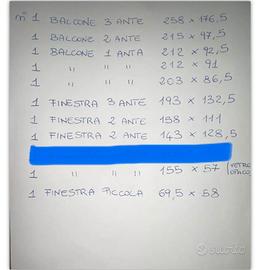 n° 1 BALCONE 3 ANTE 258 x 176,5
1 BALCONE 2 ANTE 215 x 97,5
1 BALCONE 1 ANTA 212 x 92,5
1 " " " 212 x 91
1 " " " 203 x 86,5
1 FINESTRA 3 ANTE 193 x 132,5
1 FINESTRA 2 ANTE 158 x 111
1 FINESTRA 2 ANTE 143 x 128,5
1 " " " 155 x 57 (VETRO OPACO)
1 FINESTRA PICCOLA 69,5 x 58
subito